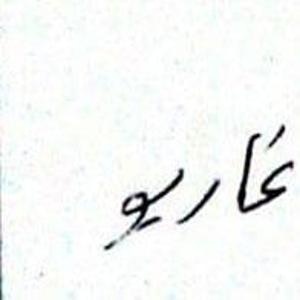 عاریو